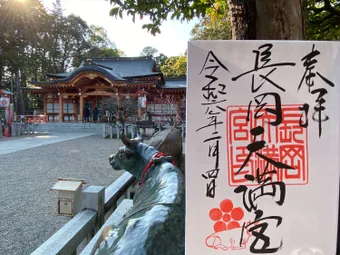 奉拝
長岡天満宮
令和六年二月四日